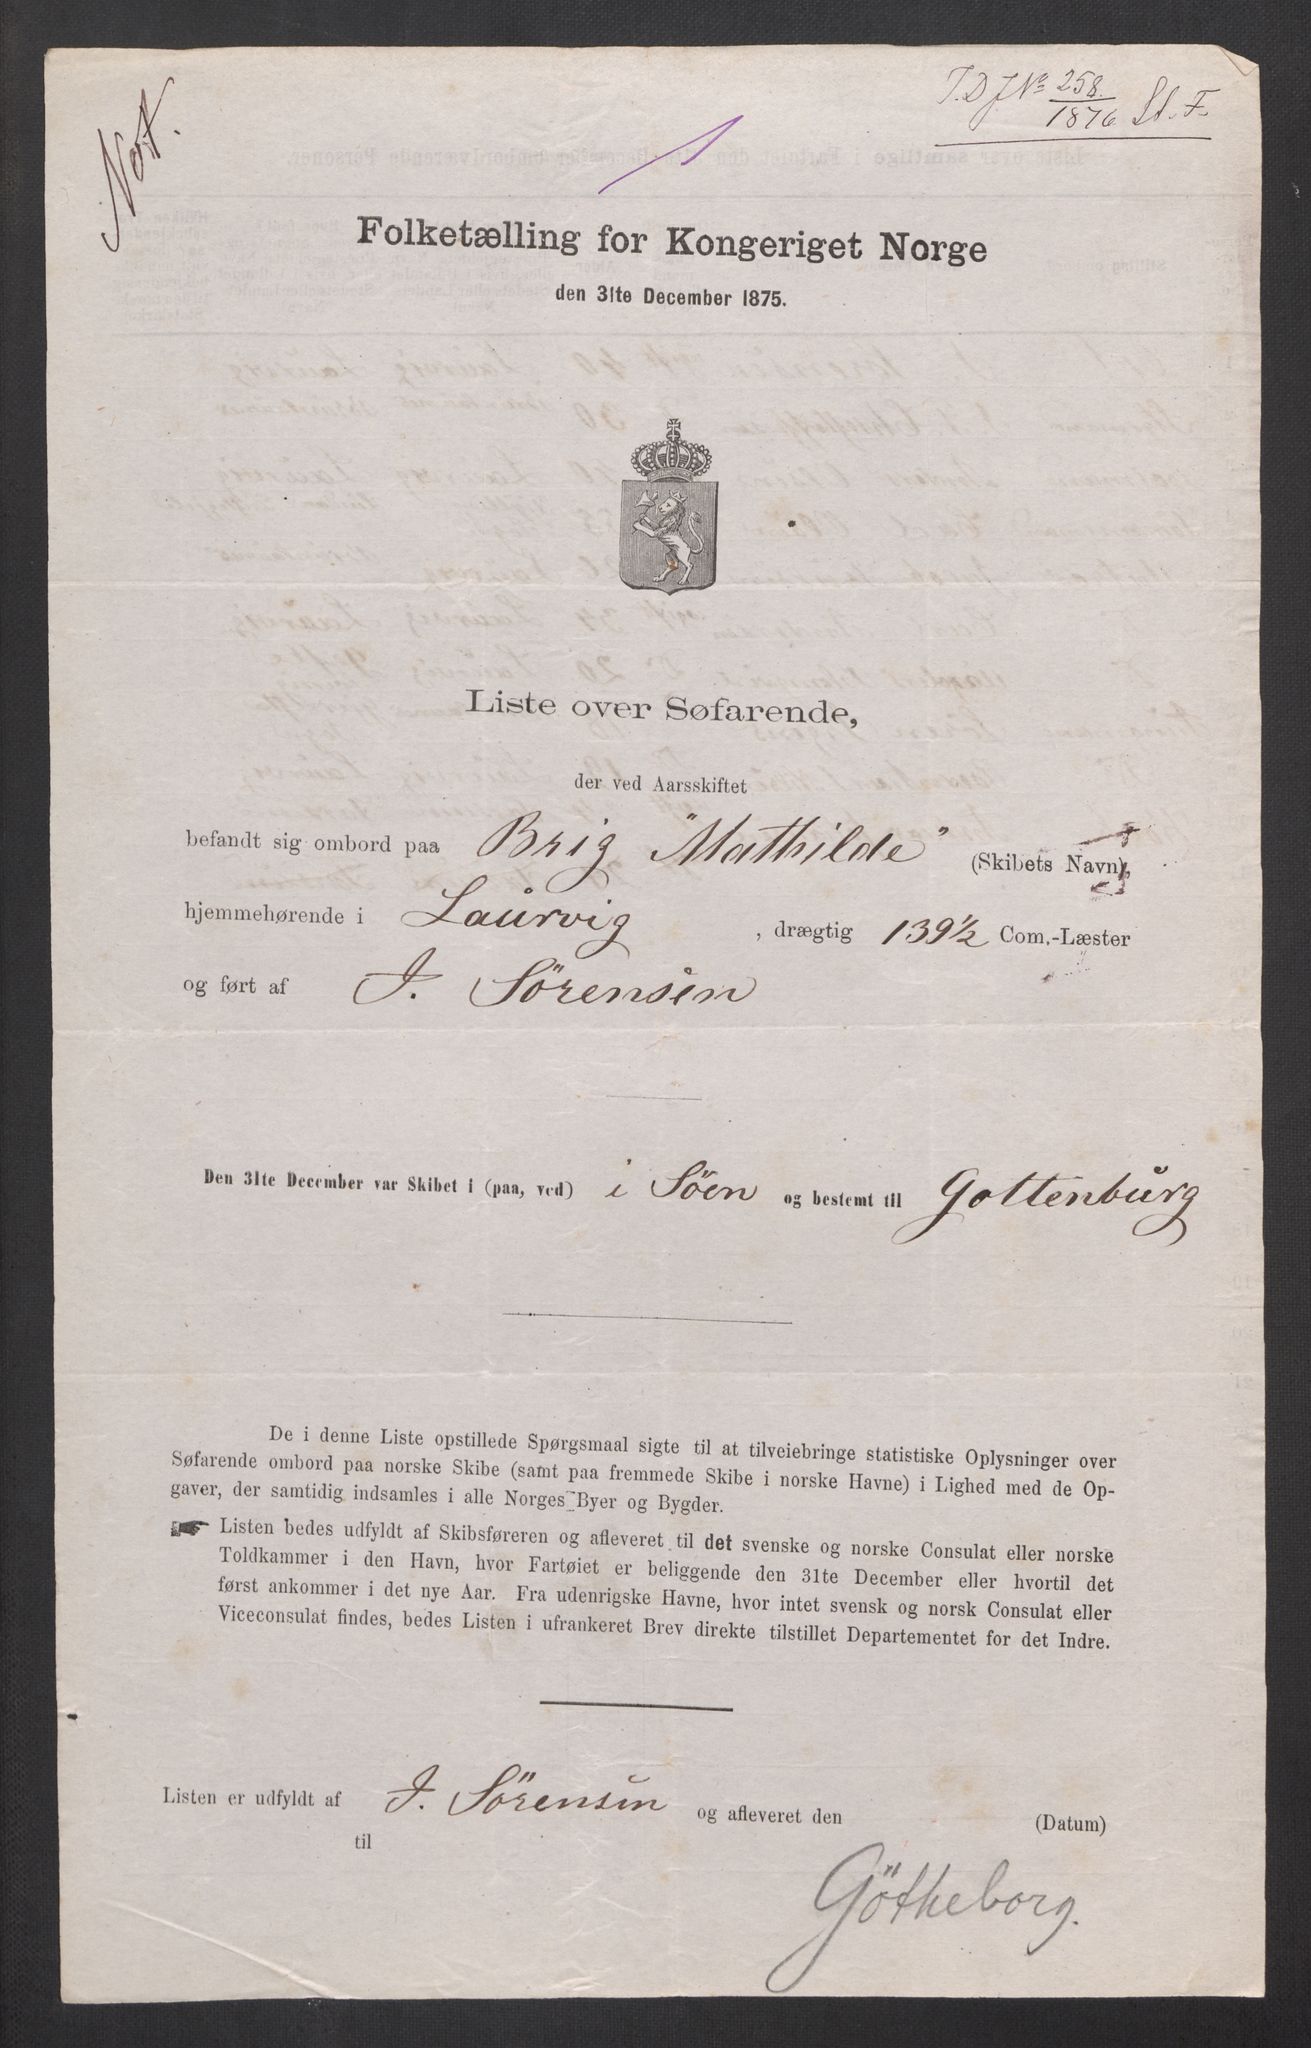 Not.
I.D J.No 258./1876 St. F.
Folketælling for Kongeriget Norge
den 31te December 1875.
Liste over Søfarende,
der ved Aarsskiftet
befandt sig ombord paa Brig "Mathilde" (Skibets Navn),
hjemmehørende i Laurvig, drægtig 139 1/2 Com.-Læster
og ført af J. Sörensen
Den 31te December var Skibet i (paa, ved) i Söen og bestemt til Gottenburg
De i denne Liste opstillede Spørgsmaal sigte til at tilveiebringe statistiske Oplysninger over
Søfarende ombord paa norske Skibe (samt paa fremmede Skibe i norske Havne) i Lighed med de Op-
gaver, der samtidig indsamles i alle Norges Byer og Bygder.
Listen bedes udfyldt af Skibsføreren og afleveret til det svenske og norske Consulat eller norske
Toldkammer i den Havn, hvor Fartøiet er beliggende den 31te December eller hvortil det
først ankommer i det nye Aar. Fra udenrigske Havne, hvor intet svensk og norsk Consulat eller
Viceconsulat findes, bedes Listen i ufrankeret Brev direkte tilstillet Departementet for det Indre.
Listen er udfyldt af J. Sörensen og afleveret den (Datum)
til
Götheborg.